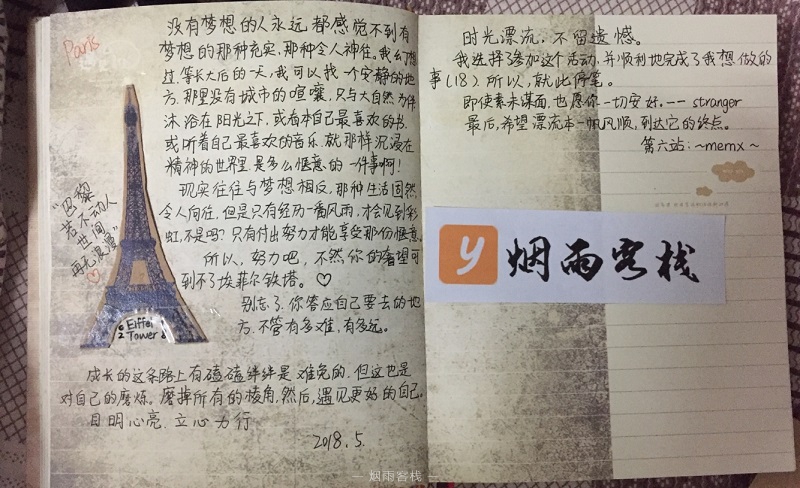 Paris.
没有梦想的人永远都感觉不到有
梦想的那种充实,那种令人神往。我幻想
过,等长大后的一天,我可以找一个安静的地
方,那里没有城市的喧嚣,只与大自然为伴
沐浴在阳光之下,或看本自己最喜欢的书.
或听着自己最喜欢的音乐.就那样沉浸在
精神的世界里.是多么惬意的一件事啊!
现实往往与梦想相反,那种生活固然
令人向往,但是只有经历一番风雨,才会见到彩
虹,不是吗?只有付出努力才能享受那份惬意。
所以,努力吧,不然,你的奢望可
到不了埃菲尔铁塔。♡
别忘了,你答应自己要去的地
方.不管有多难,有多远。
“巴黎
若不动人
世间
再无浪漫”
♡
Eiffel
Tower
成长的这条路上有磕磕绊绊是难免的,但这也是
对自己的磨炼。磨掉所有的棱角,然后,遇见更好的自己。
目明心亮.立心力行
2018.5.
时光漂流,不留遗憾。
我选择参加这个活动,并顺利地完成了我想做的
事(18).所以,就此停笔。
即使素未谋面,也愿你一切安好.—— stranger
最后,希望漂流本一帆风顺,到达它的终点。
第六站:~memx~
y 烟雨客栈
— 烟雨客栈 —